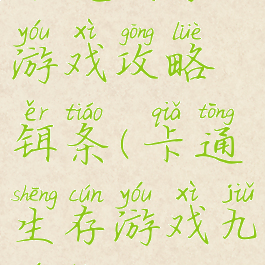 yóu xì gōng lüè
游戏攻略
ěr tiáo qiǎ tōng
铒条(卡通
shēng cún yóu xì jiǔ
生存游戏九